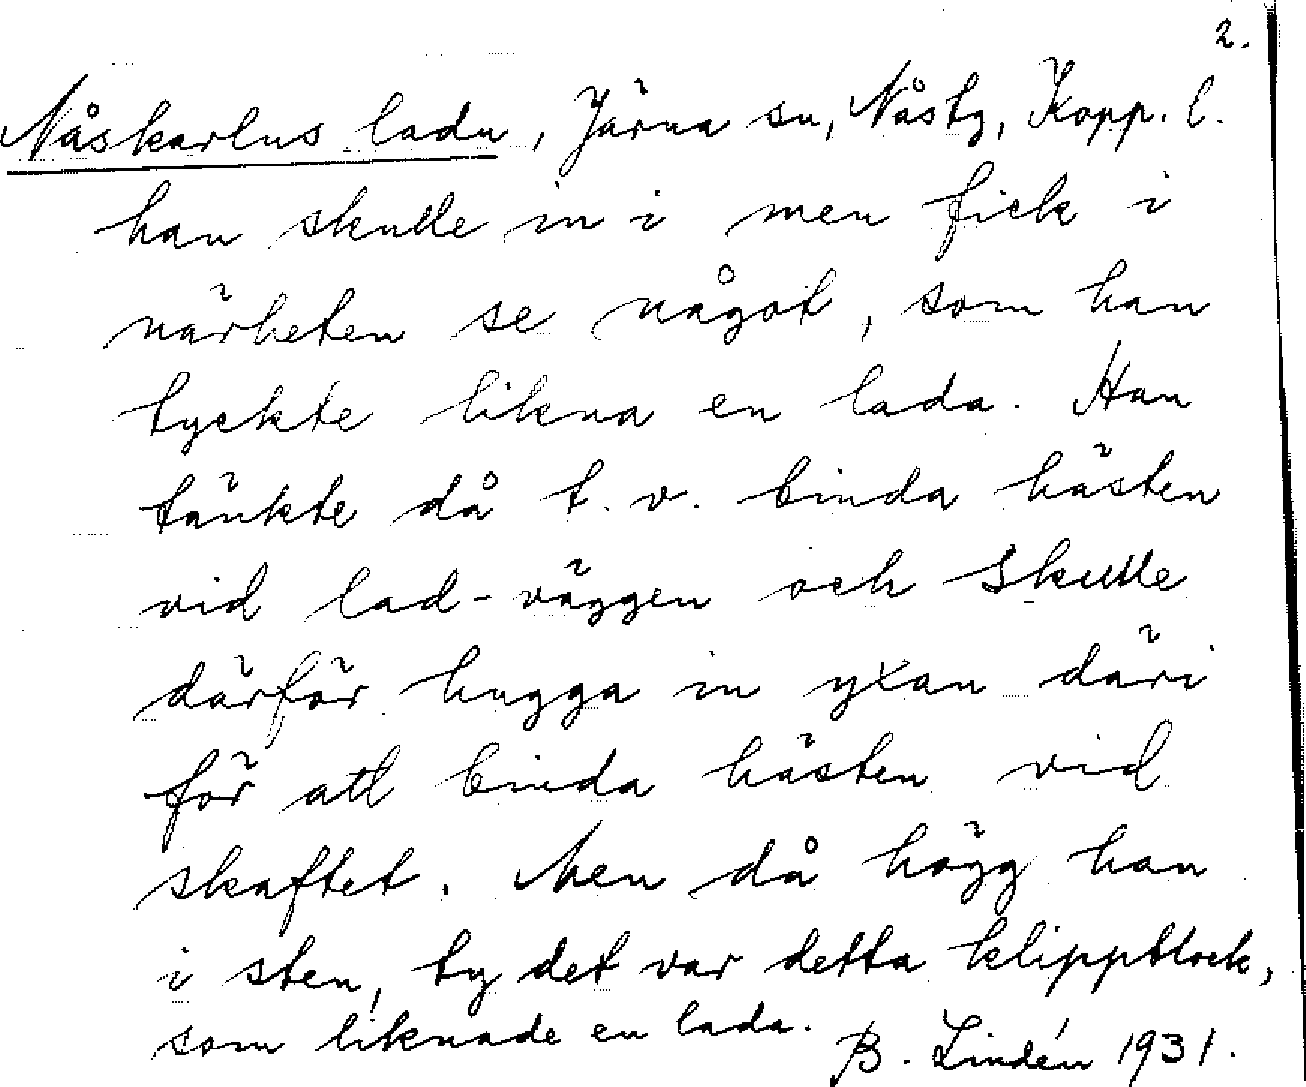 2.
Nåskarlus ladu, Järna sn, Nåsby, Kopp. l.
han skulle in i men fick i
närheten se något, som han
tyckte likna en lada. Han
tänkte då t. v. binda hästen
vid lad-väggen och skulle
därför hugga in yxan däri
för att binda hästen vid
skaftet. Men då högg han
i sten, ty det var detta klippblock,
som liknade en lada.
B. Lindén 1931.